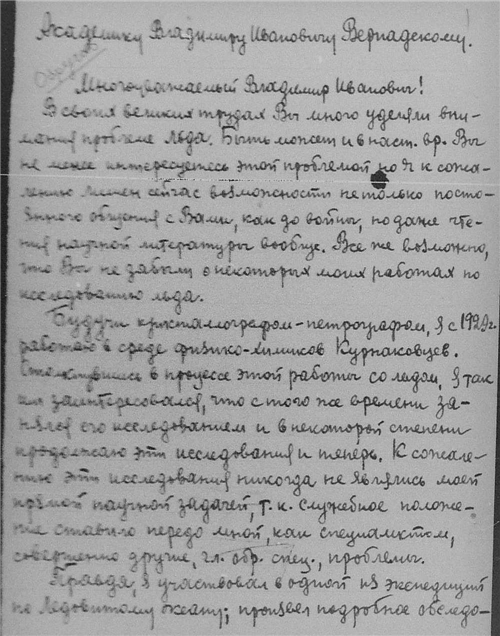 Академику Владимиру Ивановичу Вернадскому.
Многоуважаемый Владимир Иванович!
В своих великих трудах Вы много уделяли вни-
мания проблеме льда. Быть может и в наст. вр. Вы
не менее интересуетесь этой проблемой, но я к сожа-
лению лишен сейчас возможности не только посто-
янного общения с Вами, как до войны, но даже чте-
ния научной литературы вообще. Все же возможно,
что Вы не забыли о некоторых моих работах по
исследованию льда.
Будучи кристаллографом-петрографом, я с 1929 г.
работаю в среде физико-химиков Курнаковцев.
Столкнувшись в процессе этой работы со льдом, я так
им заинтересовался, что с того же времени за-
нялся его исследованием и в некоторой степени
продолжаю эти исследования и теперь. К сожале-
нию эти исследования никогда не являлись моей
прямой научной задачей, т.к. служебное положе-
ние ставило передо мной, как специалистом,
совершенно другие, гл. обр. спец., проблемы.
Правда, я участвовал в одной из экспедиций
по Ледовитому океану; произвел подробное обследо-